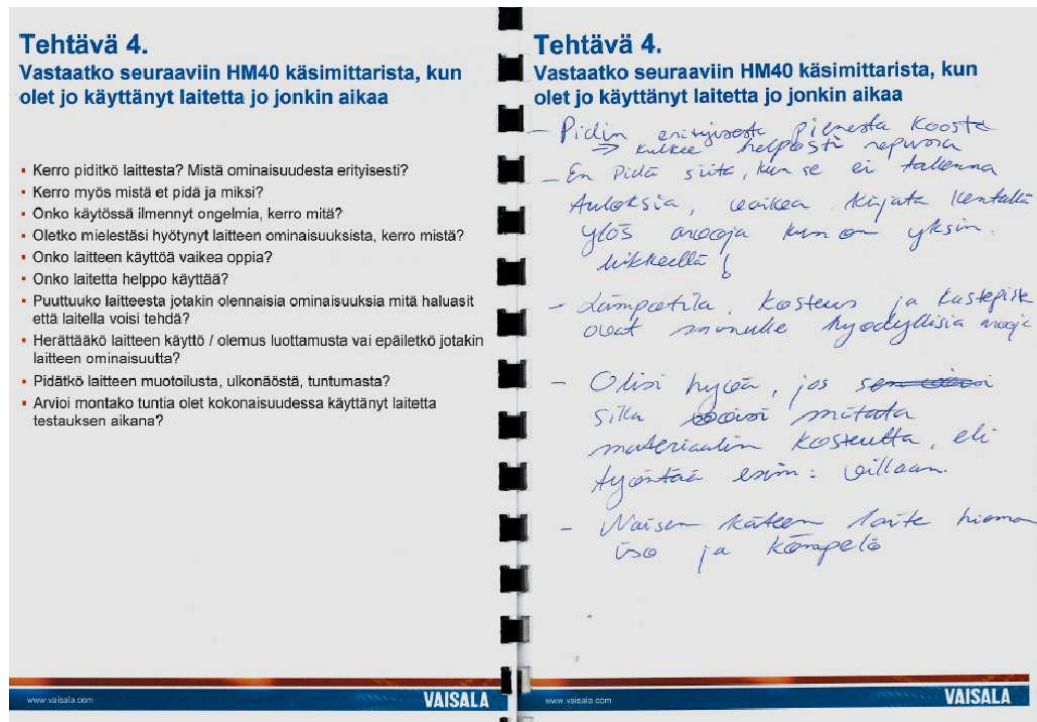 Tehtävä 4.
Vastaatko seuraaviin HM40 käsimittarista, kun
olet jo käyttänyt laitetta jo jonkin aikaa
▪ Kerro piditkö laittesta? Mistä ominaisuudesta erityisesti?
▪ Kerro myös mistä et pidä ja miksi?
▪ Onko käytössä ilmennyt ongelmia, kerro mitä?
▪ Oletko mielestäsi hyötynyt laitteen ominaisuuksista, kerro mistä?
▪ Onko laitteen käyttöä vaikea oppia?
▪ Onko laitetta helppo käyttää?
▪ Puuttuuko laitteesta jotakin olennaisia ominaisuuksia mitä haluasit
että laitella voisi tehdä?
▪ Herättääkö laitteen käyttö / olemus luottamusta vai epäiletkö jotakin
laitteen ominaisuutta?
▪ Pidätkö laitteen muotoilusta, ulkonäöstä, tuntumasta?
▪ Arvioi montako tuntia olet kokonaisuudessa käyttänyt laitetta
testauksen aikana?
www.vaisala.com
VAISALA
Tehtävä 4.
Vastaatko seuraaviin HM40 käsimittarista, kun
olet jo käyttänyt laitetta jo jonkin aikaa
- Pidin erityisesti pienestä koosta
→ kulkee helposti repussa
- En pidä siitä, kun se ei tallenna
tuloksia, vaikea kirjata kentällä
ylös arvoja kun on yksin
liikkeellä!
- Lämpötila, kosteus ja kastepiste
ovat minulle hyödyllisiä arvoja
- Olisi hyvä, jos
sillä voisi mitata
materiaalin kosteutta, eli
työntää esim: villaan.
- Naisen käteen laite hieman
iso ja kömpelö
www.vaisala.com
VAISALA